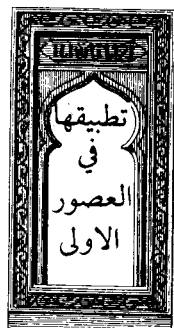 تطبيقها
في
العصور
الاولى